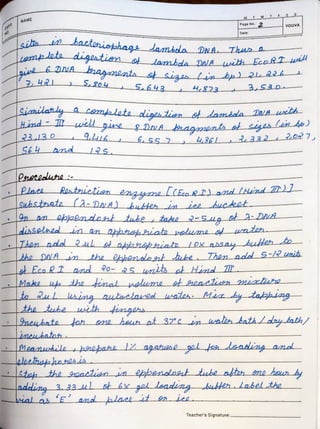 NAME
M T W T F S S
Page No.: 2
Date:
YOUVA
sites in bacteriophage lambda DNA. Thus a
complete digestion of lambda DNA with EcoRI will
give 6 DNA fragments of sizes (in bp) 21,226,
7,421, 5,804, 5,643, 4,873, 3,530.
Similarly a complete digestion of lambda DNA with
Hind-III will give 8 DNA fragments of sizes (in bp)
23,130 9,416, 6,557, 4,361, 2,332, 2,027,
564 and 125.
Procedure :-
Place Restriction enzyme [(EcoRI) and (Hind III)]
Substrate (λ-DNA) buffer in ice bucket.
In an eppendorf tube, take 2-5ug of λ-DNA
dissolved in an appropriate volume of water.
Then add 2uL of appropriate 10x assay buffer to
the DNA in the eppendorf tube. Then add 5-12 units
of EcoRI and 20-25 units of Hind III.
Make up the final volume of reaction mixture
to 2uL using autoclaved water. Mix by tapping
the tube with fingers
Incubate for one hour at 37°C in water bath / dry bath /
incubator.
Meanwhile, prepare 1% agarose gel for loading and
electrophoresis.
Stop the reaction in eppendorf tube after one hour by
adding 3.33uL of 6x gel loading buffer. Label the
vial as 'E' and place it on ice.
Teacher's Signature